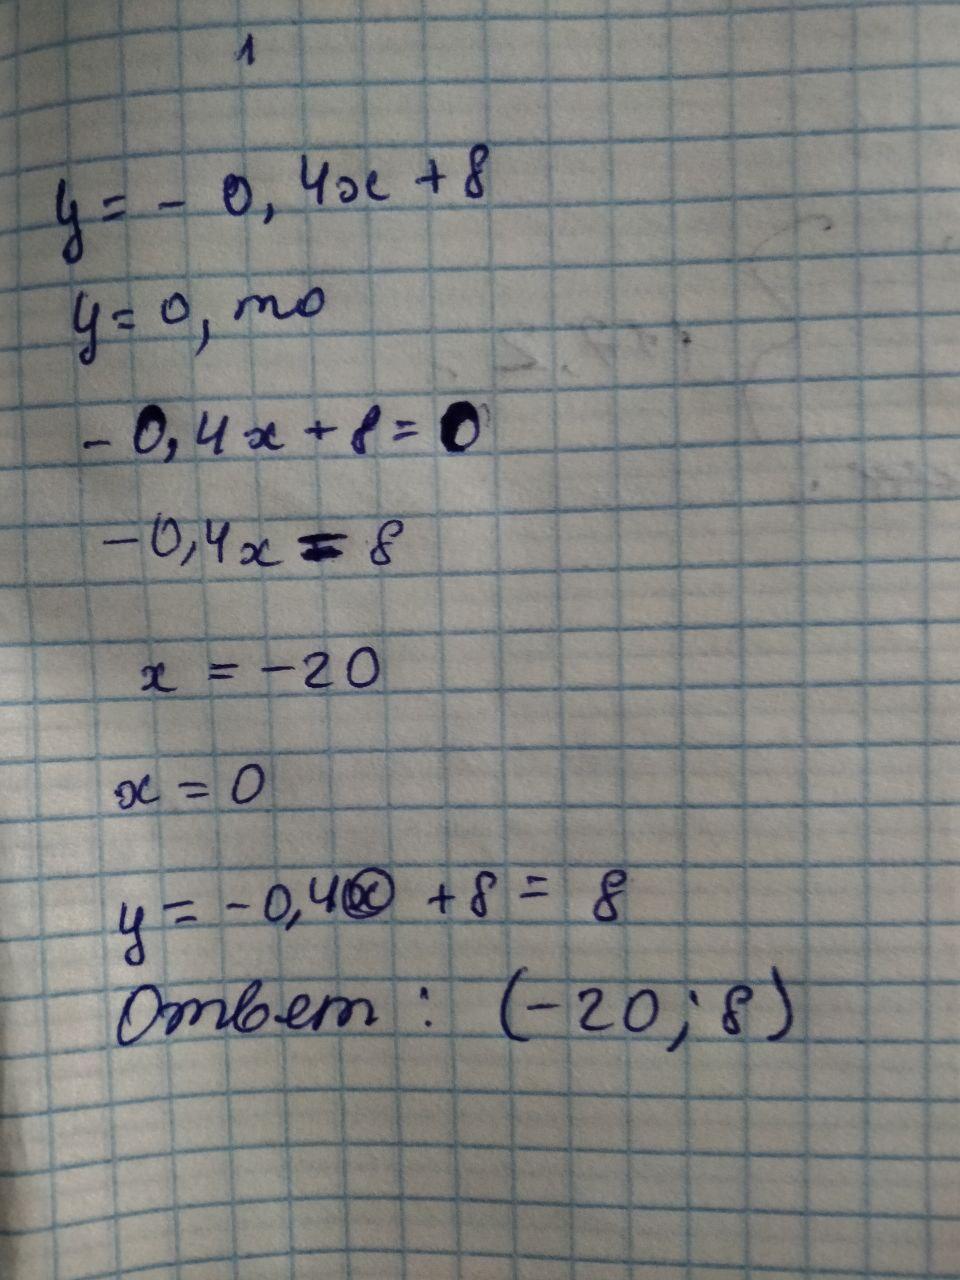 1
y = - 0,4x + 8
y = 0, то
- 0,4x + 8 = 0
-0,4x = 8
x = -20
x = 0
y = -0,4x + 8 = 8
Ответ: (-20; 8)